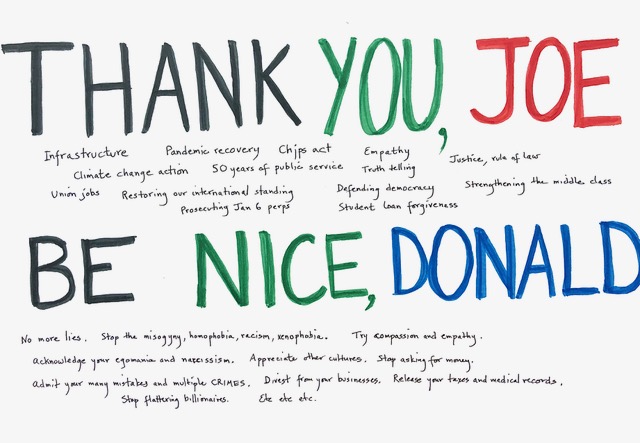 THANK YOU, JOE
Infrastructure Pandemic recovery Chips act Empathy Justice, rule of law
Climate change action 50 years of public service Truth telling
Union jobs Restoring our international standing Defending democracy Strengthening the middle class
Prosecuting Jan 6 perps Student loan forgiveness
BE NICE, DONALD
No more lies. Stop the misogyny, homophobia, racism, xenophobia. Try compassion and empathy.
Acknowledge your egomania and narcissism. Appreciate other cultures. Stop asking for money.
Admit your many mistakes and multiple CRIMES. Divest from your businesses. Release your taxes and medical records.
Stop flattering billionaires. Etc etc etc.